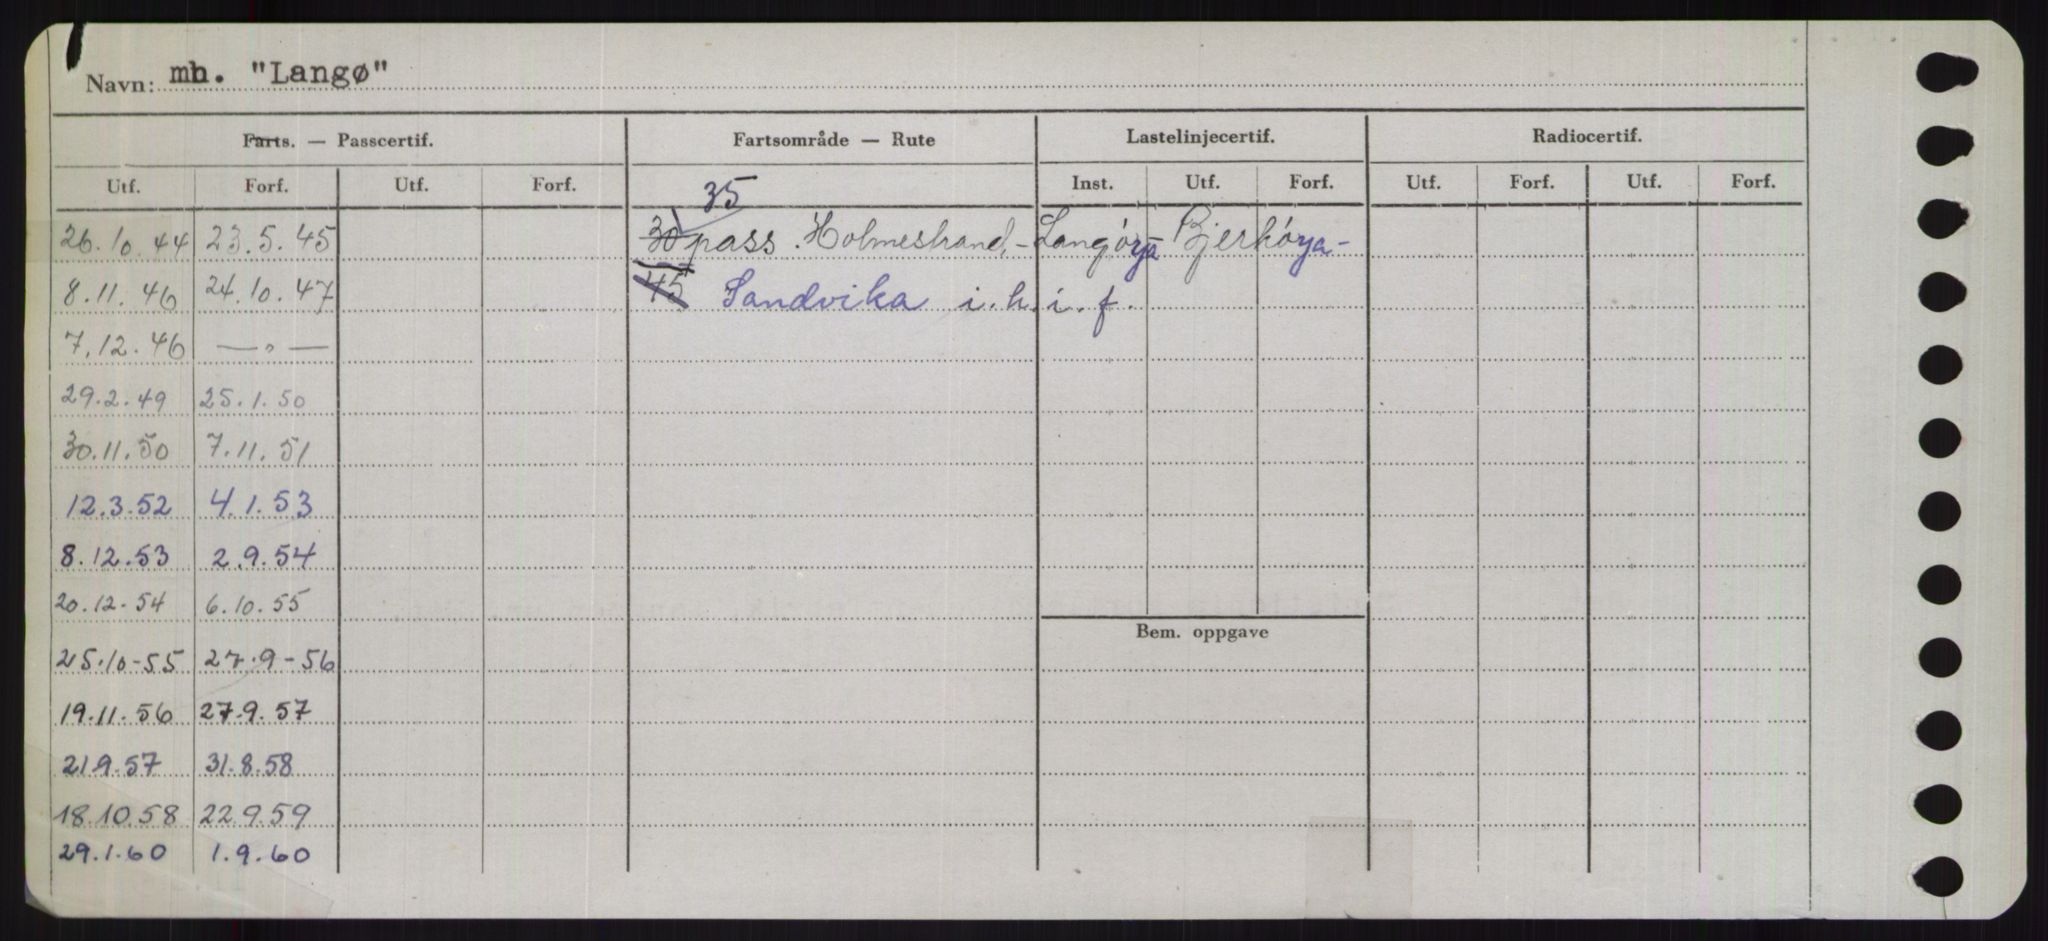 Navn: mh. "Langø"
Farts. — Passcertif. Fartsområde — Rute Lastelinjecertif. Radiocertif.
Utf. Forf. Utf. Forf. Inst. Utf. Forf. Utf. Forf. Utf. Forf.
35
26.10.44 23.5.45 30 pass. Holmestrand,-Langöya-Bjerköya-
8.11.46 24.10.47 45 Sandvika i.h.i.f.
7.12.46 — " —
29.2.49 25.1.50
30.11.50 7.11.51
12.3.52 4.1.53
8.12.53 2.9.54
20.12.54 6.10.55
Bem. oppgave
25.10-55 27.9-56
19.11.56 27.9.57
21 9.57 31.8.58
18.10.58 22.9.59
29.1.60 1.9.60